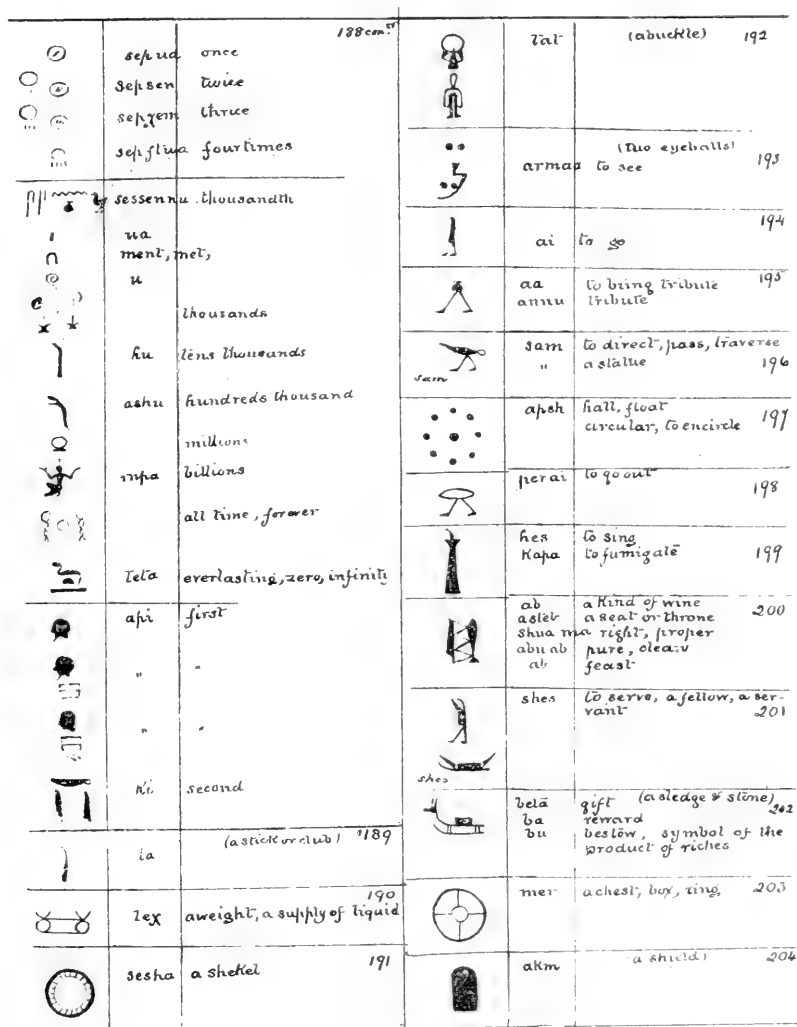 188 con.d
sepua once
sepsen twice
sepxem thrice
sepftua four times
sessennu thousandth
ua
ment, met,
u
thousands
hu tens thousands
ashu hundreds thousand
millions
billions
all time, forever
teta everlasting, zero, infinity
api first
" "
" "
second
(a stick or club) 189
ta
190
tex a weight, a supply of liquid
191
sesha a shekel
tat (a buckle) 192
(two eyeballs)
armaa to see 193
194
ai to go
aa to bring tribute 195
annu tribute
sam to direct, pass, traverse
" a statue 196
sam
apsh hall, float 197
circular, to encircle
per ai to go out 198
hes to sing
Kapa to fumigate 199
ab a kind of wine
asteb a seat or throne 200
shua ma right, proper
abu ab pure, clean
ab feast
shes to serve, a fellow, a ser-
vant 201
shes
beta gift (a sledge & stone) 202
ba reward
bu bestow, symbol of the
product of riches
mer a chest, box, ring 203
akm (a shield) 204